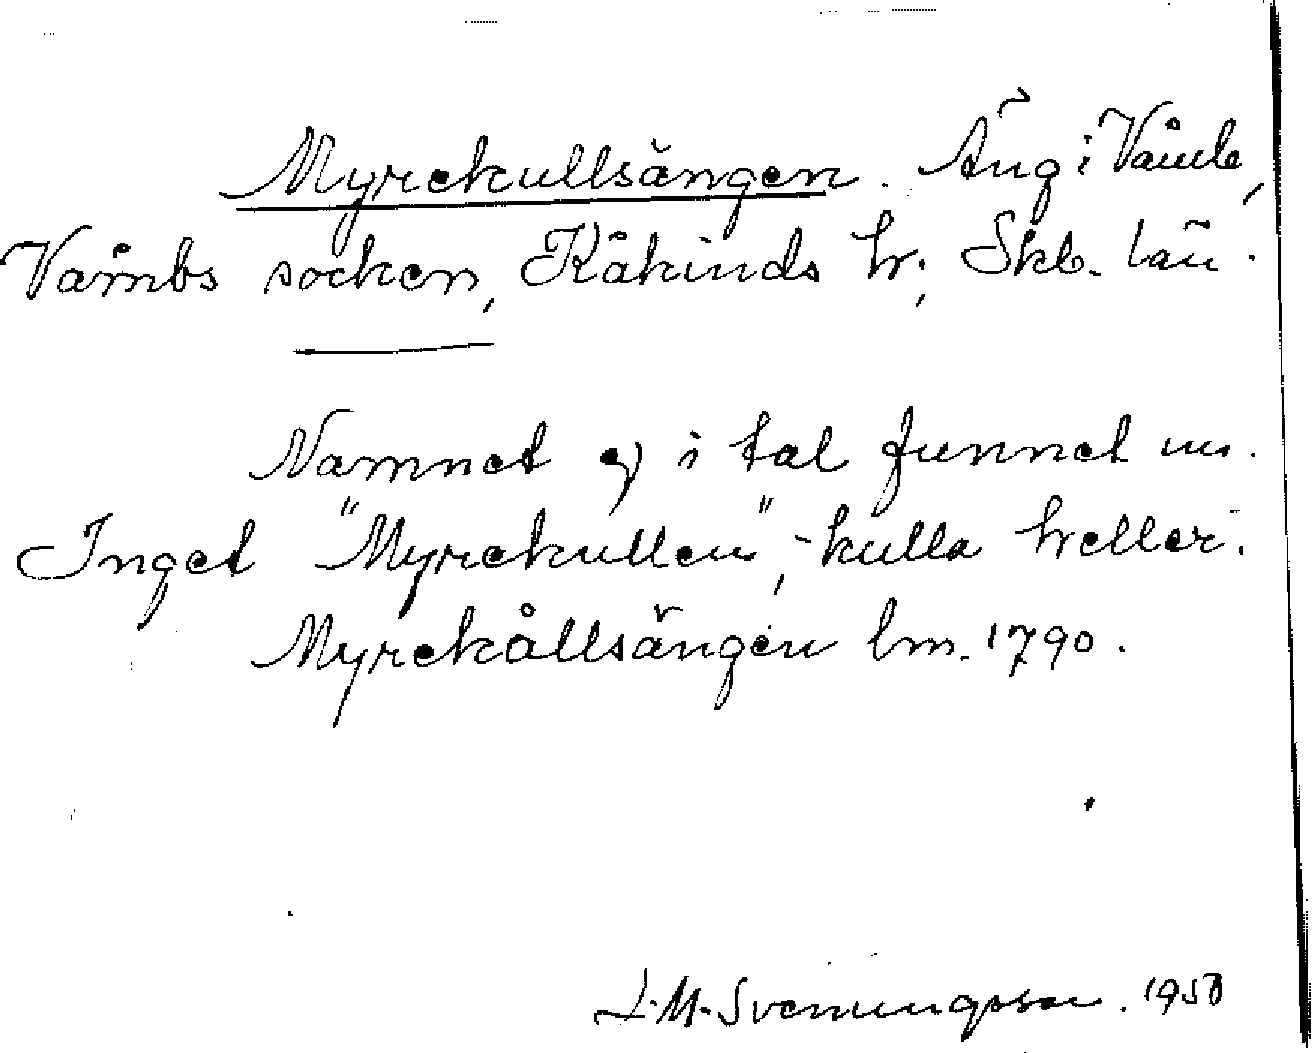 Myrekullsängen. Äng i Våmb,
Våmbs socken, Kåkinds hr; Skb. län.
Namnet ej i tal funnet nu.
Inget "Myrekullen", -kulla heller.
Myrekållsängen lm. 1790.
L. M. Svenungsson. 1950